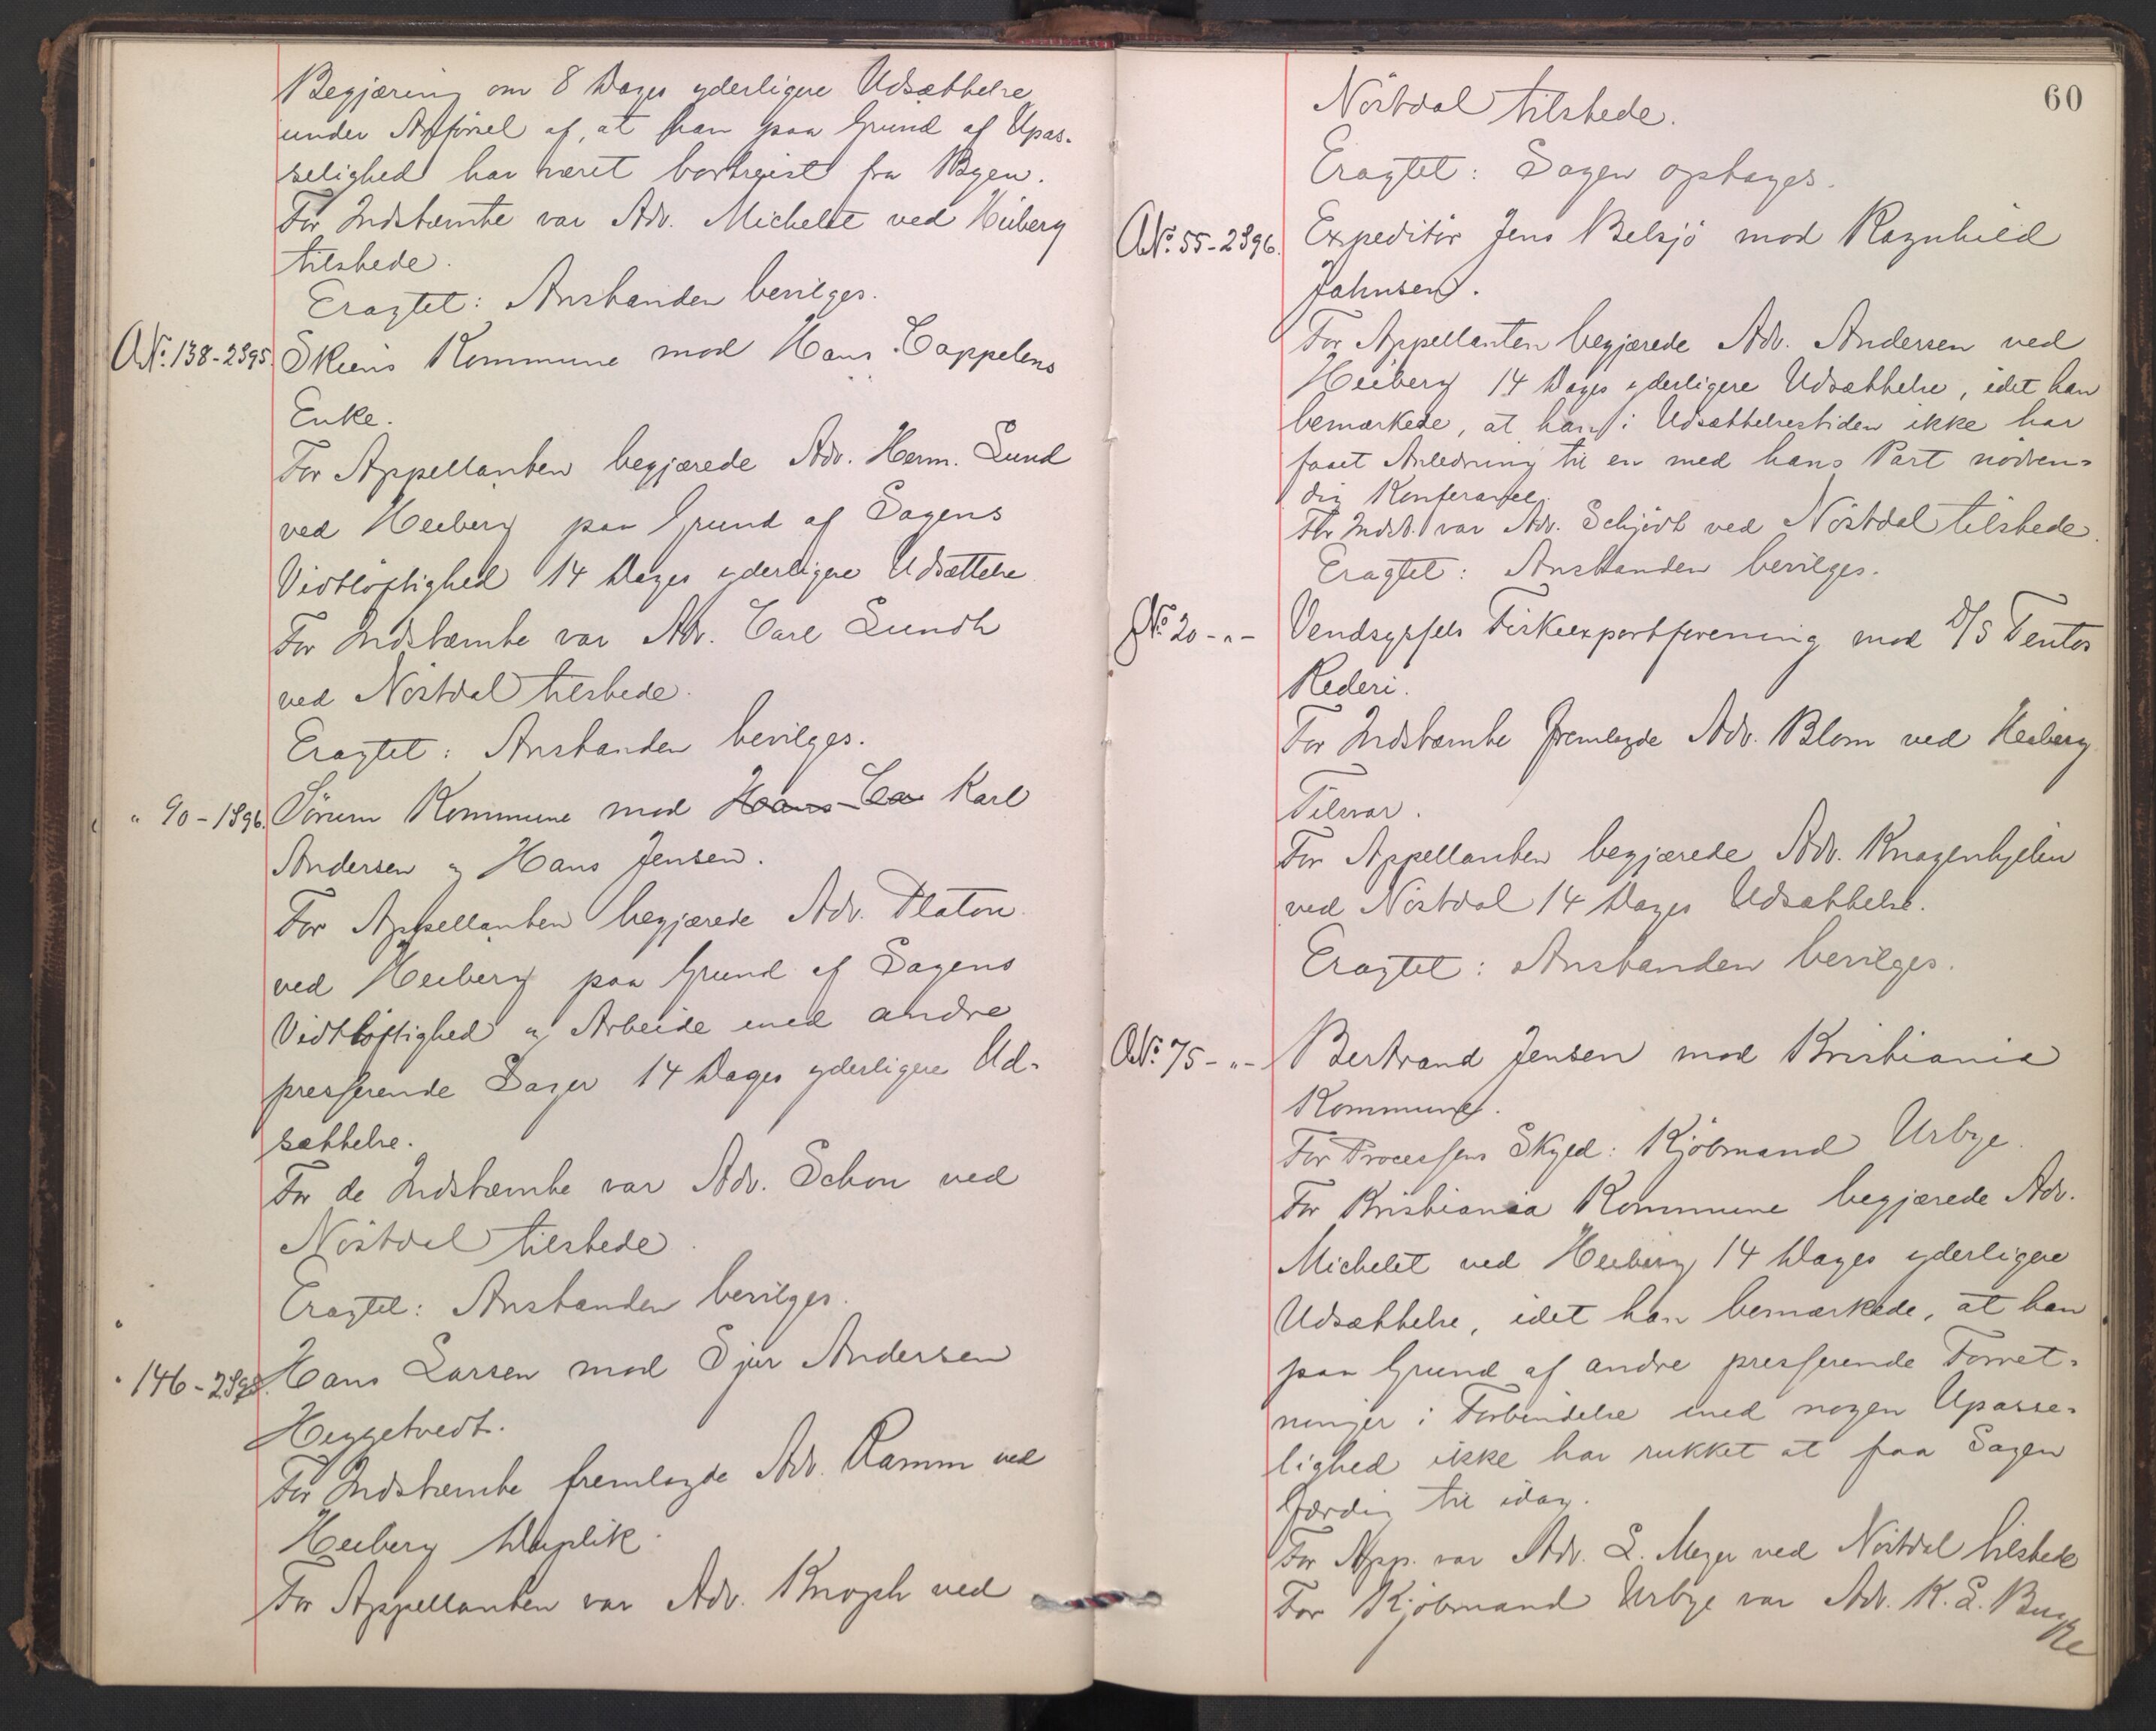 Begjæring om 8 Dages yderligere Udsættelse
under Anförsel af, at han paa Grund af Upas-
selighed har været bortreist fra Byen.
For Indstævnte var Adv. Michelet ved Heiberg
tilstede.
Eragtet: Anstanden bevilges.
A№: 138-2S95. Skiens Kommune mod Hans Cappelens
Enke.
For Appellanten begjærede Adv. Herm. Lund
ved Heiberg paa Grund af Sagens
Vidtløftighed 14 Dages yderligere Udsættelse
For Indstævnte var Adv. Carl Lundh
ved Nöstdal tilstede.
Eragtet: Anstanden bevilges.
" 90-1S96. Sörum Kommune mod Hans Ca Karl
Andersen og Hans Jensen.
For Appellanten begjærede Adv. Platou
ved Heiberg paa Grund af Sagens
Vidtlöftighed og Arbeide med andre
presserende Sager 14 Dages yderligere Ud-
sættelse.
For de Indstævnte var Adv. Schou ved
Nöstdal tilstede.
Eragtet: Anstanden bevilges.
" 146-2S95. Hans Larsen mod Sjur Andersen
Heggetvedt.
For Indstævnte fremlagde Adv. Ramm ved
Heiberg Duplik.
For Appellanten var Adv. Knoph ved
60
Nöstdal tilstede.
Eragtet: Sagen optages.
A№: 55-2S96. Expeditör Jens Belsjö mod Ragnhild
Jahnsen.
For Appellanten begjærede Adv. Andersen ved
Heiberg 14 Dages yderligere Udsættelse, idet han
bemærkede, at han i Udsættelsestiden ikke har
faaet Anledning til en med hans Part nödven-
dig Konferance.
For Indst. var Adv. Schjödt ved Nöstdal tilstede.
Eragtet: Anstanden bevilges.
№: 20-"- Vendsyssels Fiskeexportforening mod D/S Tentos
Rederi.
For Indstævnte fremlagde Adv. Blom ved Heiberg
Tilsvar.
For Appellanten begjærede Adv. Knagenhjelm
ved Nöstdal 14 Dages Udsættelse.
Eragtet: Anstanden bevilges.
A№: 75-"- Bertrand Jensen mod Kristiania
Kommune.
For Processens Skyld: Kjöbmand Urbye.
For Kristiania Kommune begjærede Adv.
Michelet ved Heiberg 14 Dages yderligere
Udsættelse, idet han bemærkede, at han
paa Grund af andre presserende Forret-
ninger i Forbindelse med nogen Upasse-
lighed ikke har rukket at faa Sagen
færdig til idag.
For App. var Adv. L. Meyer ved Nöstdal tilstede
For Kjöbmand Urbye var Adv. K. L. Bugge